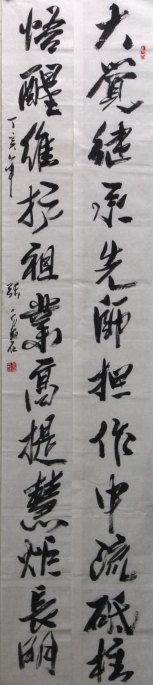 大覺継承先師担作中流砥柱
悟醒維护祖業高提慧炬長明
丁亥年